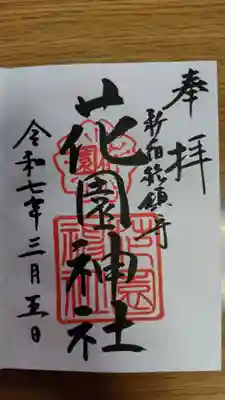 奉拝
新宿総鎮守
花園神社
令和七年三月五日
花園神社